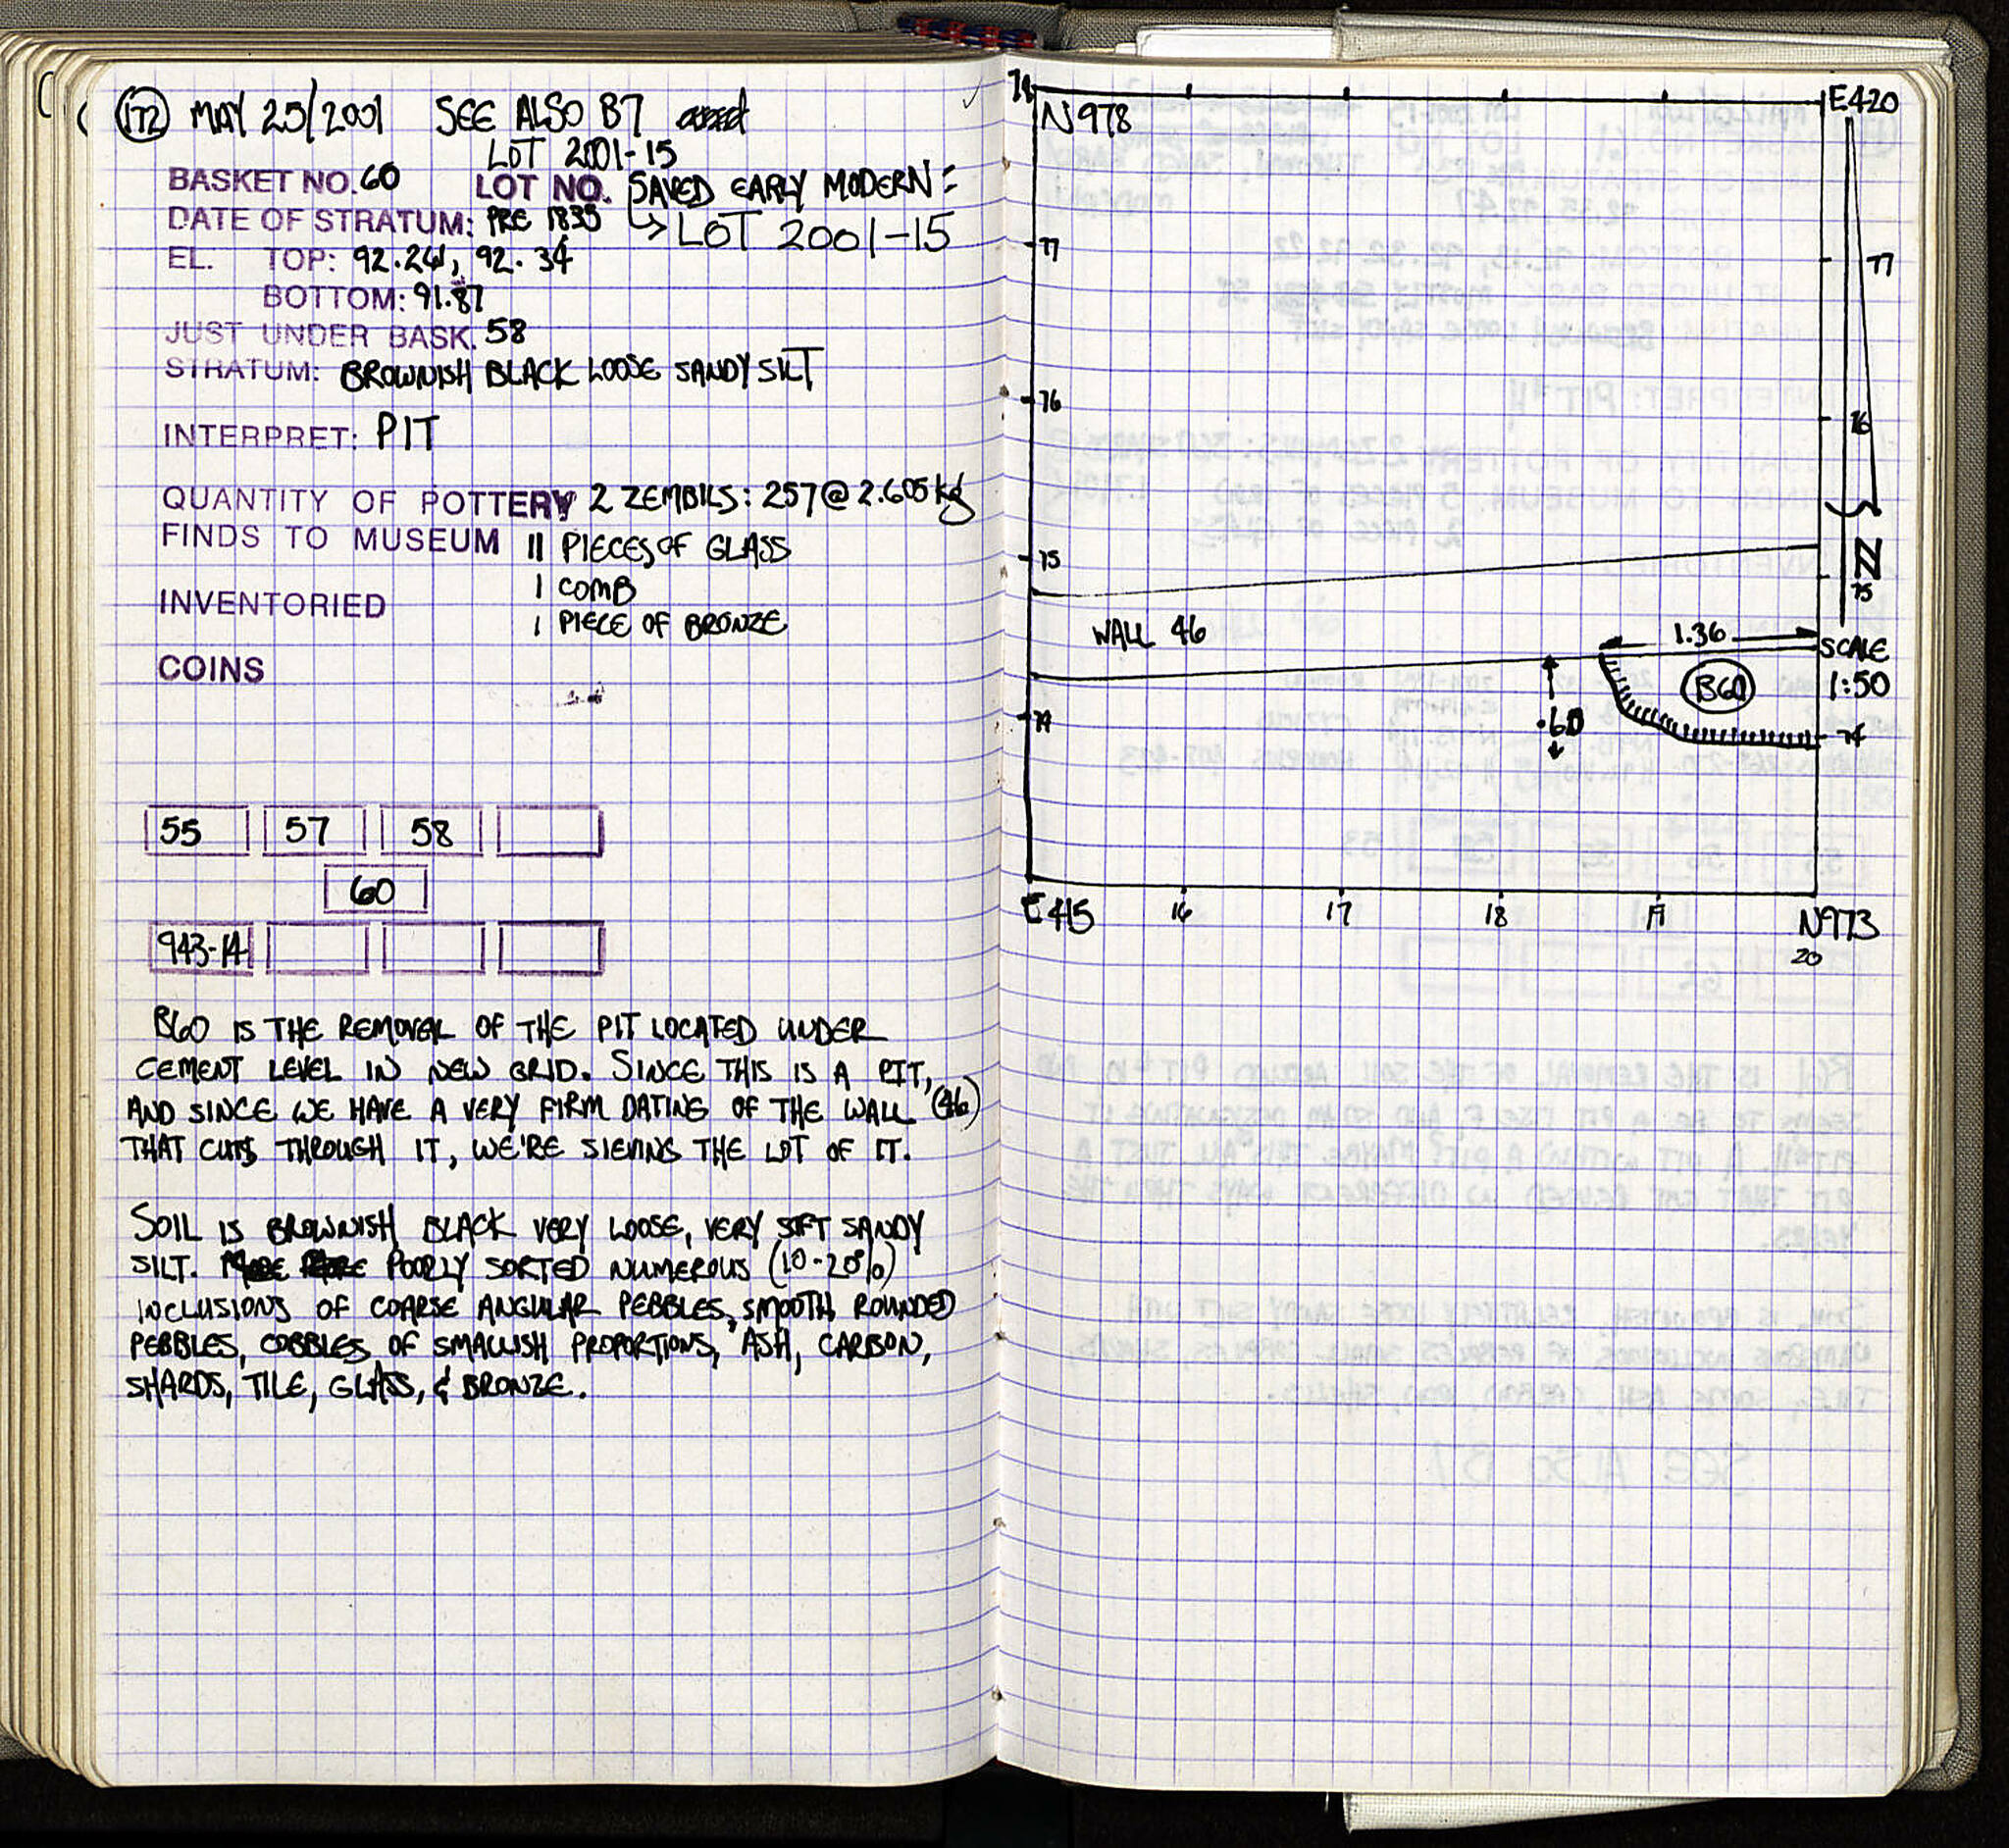 172 MAY 25/2001 SEE ALSO B7
LOT 2001-15
BASKET NO. 60 LOT NO. SAVED EARLY MODERN:
DATE OF STRATUM: PRE 1835 ↳ LOT 2001-15
EL. TOP: 92.24, 92.34
BOTTOM: 91.87
JUST UNDER BASK. 58
STRATUM: BROWNISH BLACK LOOSE SANDY SILT
INTERPRET: PIT
QUANTITY OF POTTERY 2 ZEMBILS: 257 @ 2.605 kg
FINDS TO MUSEUM 11 PIECES OF GLASS
1 COMB
INVENTORIED
1 PIECE OF BRONZE
COINS
55 57 58
60
943-14
B60 IS THE REMOVAL OF THE PIT LOCATED UNDER
CEMENT LEVEL IN NEW GRID. SINCE THIS IS A PIT,
AND SINCE WE HAVE A VERY FIRM DATING OF THE WALL (46)
THAT CUTS THROUGH IT, WE'RE SIEVING THE LOT OF IT.
SOIL IS BROWNISH BLACK VERY LOOSE, VERY SOFT SANDY
SILT. POORLY SORTED NUMEROUS (10-20%)
INCLUSIONS OF COARSE ANGULAR PEBBLES, SMOOTH ROUNDED
PEBBLES, COBBLES OF SMALLISH PROPORTIONS, ASH, CARBON,
SHARDS, TILE, GLASS, & BRONZE.
78 N978 E420
77 77
76 76
75 N
75
WALL 46 1.36 SCALE
B60 1:50
74 .60 74
E415 16 17 18 19 N973
20